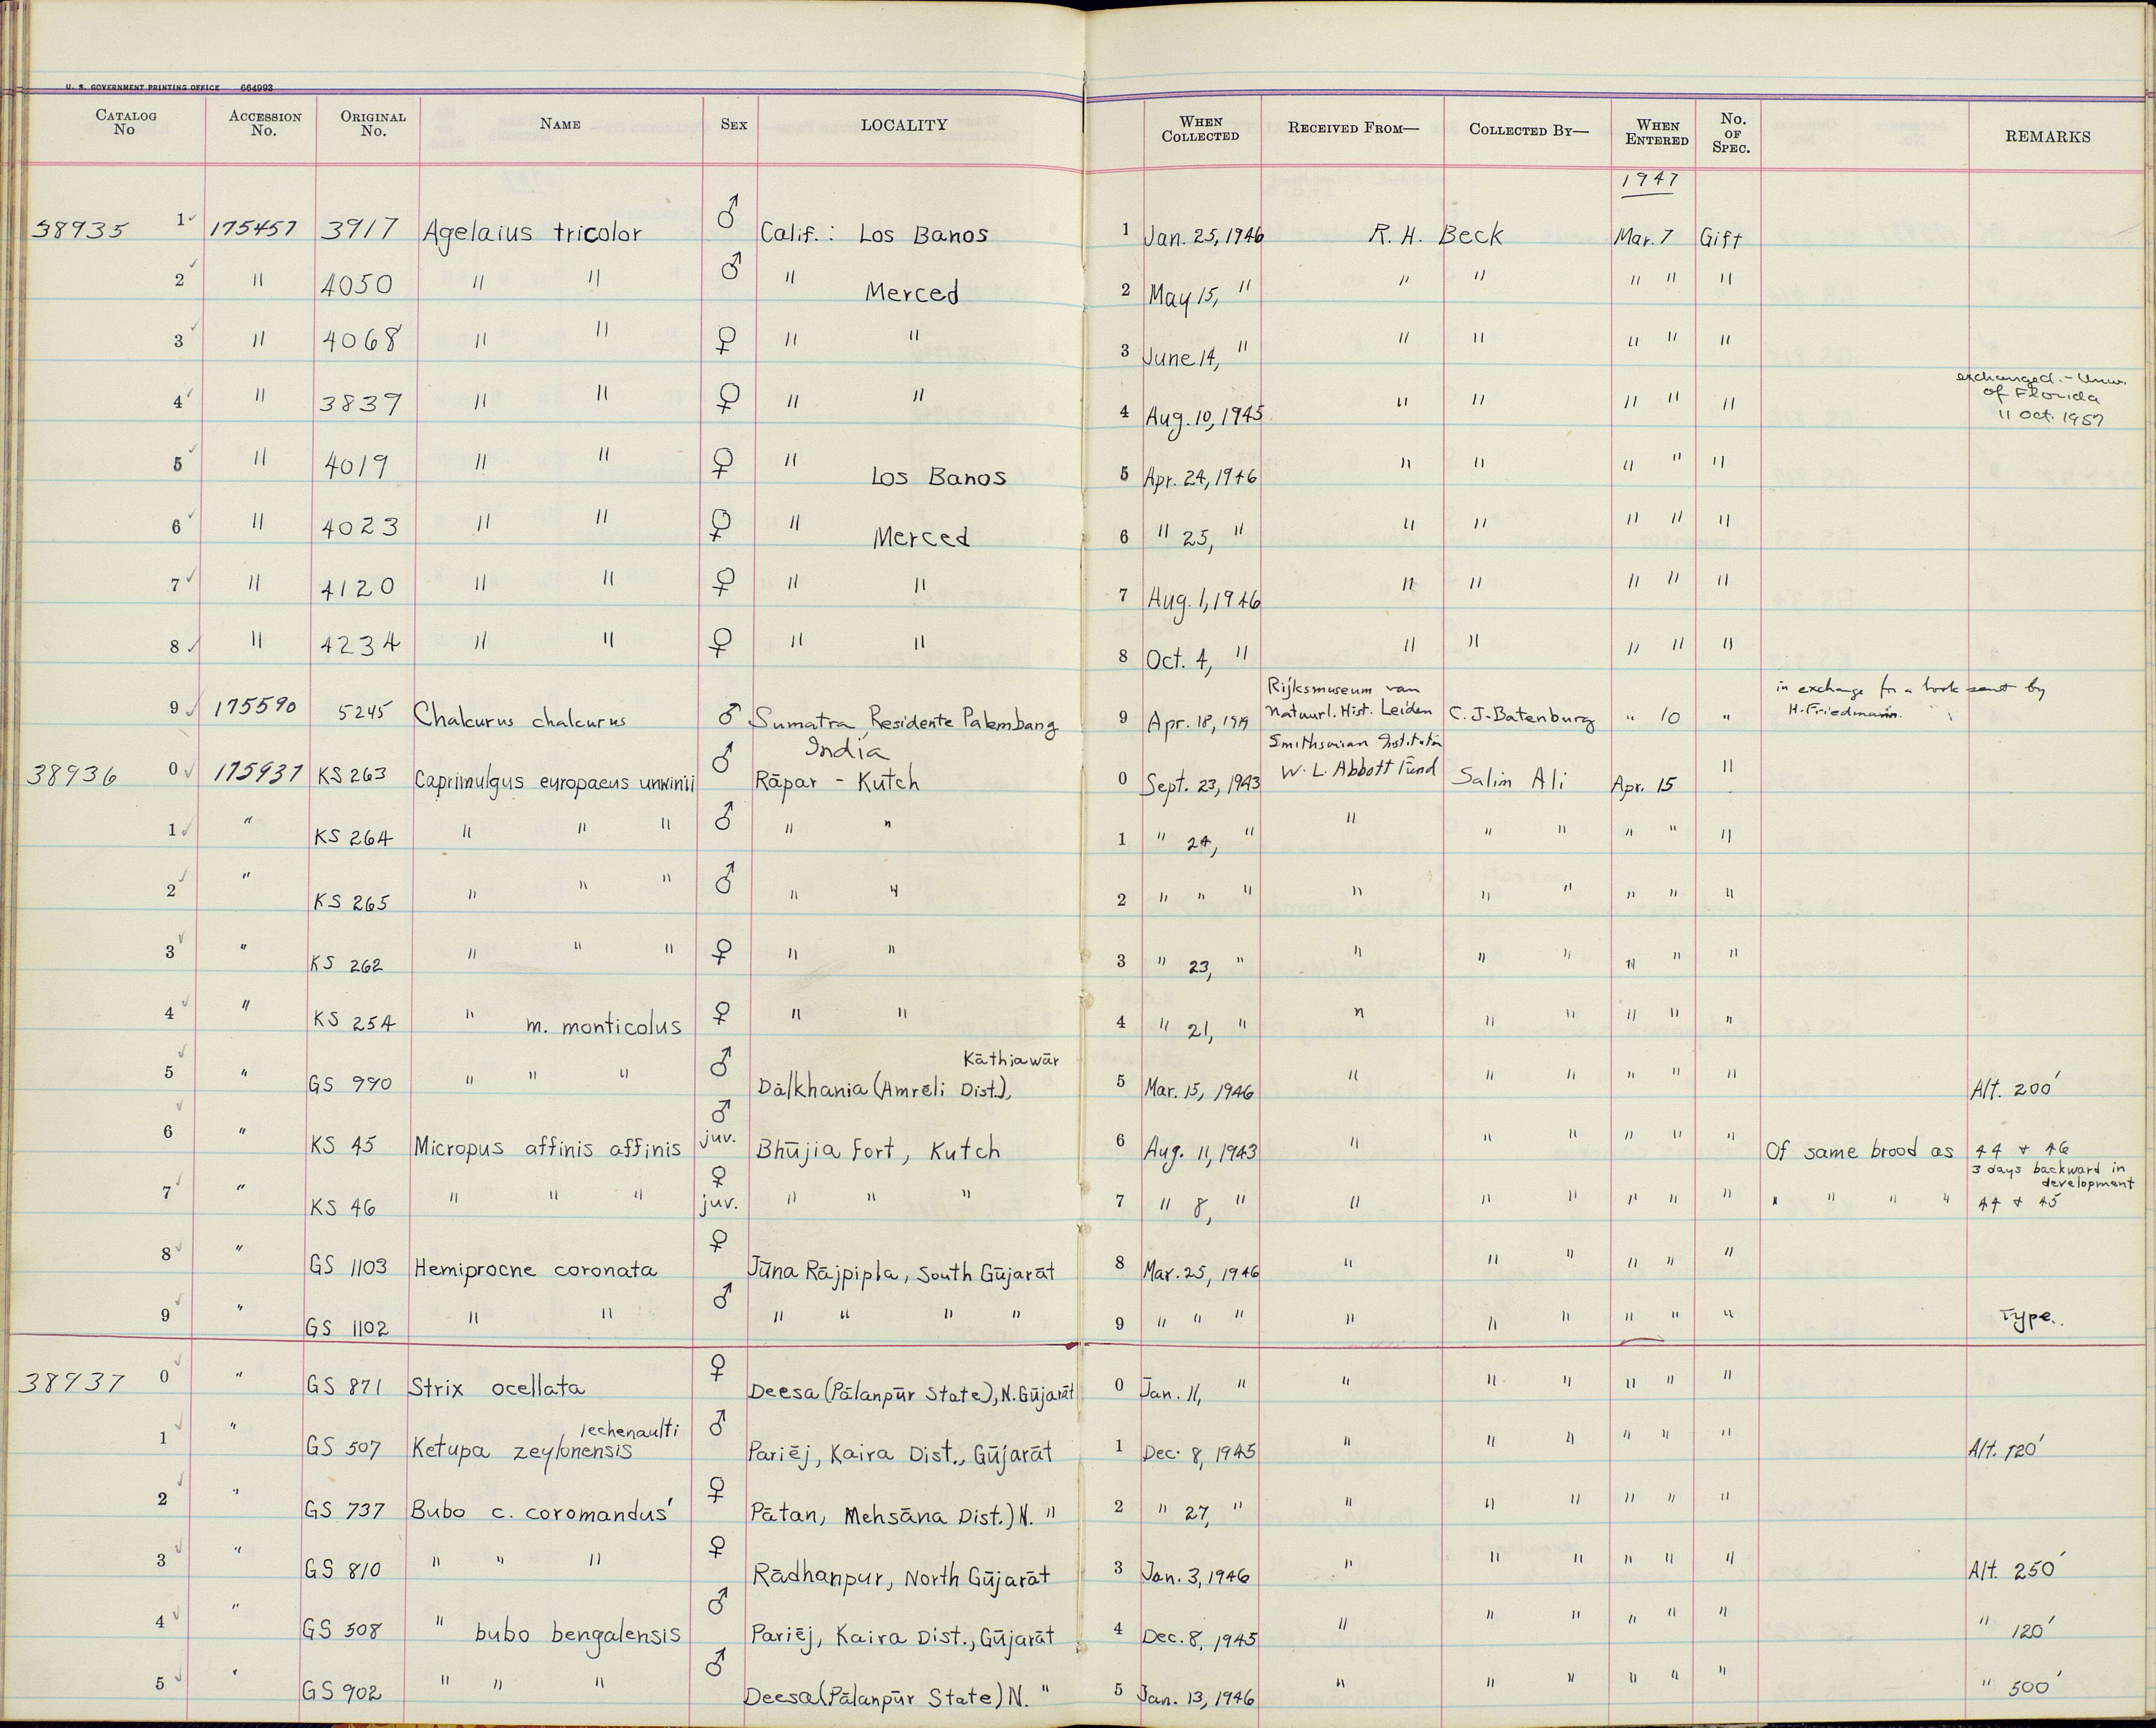 U. S. GOVERNMENT PRINTING OFFICE 664993
CATALOG No ACCESSION No. ORIGINAL No. NAME SEX LOCALITY WHEN COLLECTED RECEIVED FROM— COLLECTED BY— WHEN ENTERED No. OF SPEC. REMARKS
1947
38935 1 175457 3917 Agelaius tricolor ♂ Calif.: Los Banos 1 Jan. 25, 1946 R. H. Beck Mar. 7 Gift
2 " 4050 " " ♂ " Merced 2 May 15, " " " " " "
3 " 4068 " " ♀ " " 3 June 14, " " " " " "
4 " 3839 " " ♀ " " 4 Aug. 10, 1945 " " " " " exchanged.- Univ. of Florida 11 Oct. 1957
5 " 4019 " " ♀ " Los Banos 5 Apr. 24, 1946 " " " " "
6 " 4023 " " ♀ " Merced 6 " 25, " " " " " "
7 " 4120 " " ♀ " " 7 Aug. 1, 1946 " " " " "
8 " 4234 " " ♀ " " 8 Oct. 4, " " " " " "
9 175590 5245 Chalcurus chalcurus ♂ Sumatra, Residente Palembang 9 Apr. 18, 1919 Rijksmuseum van Natuurl. Hist. Leiden C. J. Batenburg " 10 " in exchange for a book sent by H. Friedmann.
India
38936 0 175937 KS 263 Caprimulgus europaeus unwinii ♂ Rāpar - Kutch 0 Sept. 23, 1943 Smithsonian Institution W. L. Abbott Fund Salim Ali Apr. 15 "
1 " KS 264 " " " ♂ " " 1 " 24, " " " " " " "
2 " KS 265 " " " ♂ " " 2 " " " " " " " " "
3 " KS 262 " " " ♀ " " 3 " 23, " " " " " " "
4 " KS 254 " m. monticolus ♀ " " 4 " 21, " " " " " " "
5 " GS 990 " " " ♂ Dālkhania (Amreli Dist.), Kāthiawār 5 Mar. 15, 1946 " " " " " " Alt. 200'
6 " KS 45 Micropus affinis affinis ♂ juv. Bhūjia Fort, Kutch 6 Aug. 11, 1943 " " " " " " Of same brood as 44 + 46
3 days backward in development
7 " KS 46 " " " ♀ juv. " " " 7 " 8, " " " " " " " " " " " 44 + 45
8 " GS 1103 Hemiprocne coronata ♀ Jūna Rājpipla, South Gūjarāt 8 Mar. 25, 1946 " " " " " "
9 " GS 1102 " " ♂ " " " " 9 " " " " " " " " " Type.
38937 0 " GS 871 Strix ocellata ♀ Deesa (Pālanpūr State), N. Gūjarāt 0 Jan. 11, " " " " " " "
1 " GS 507 Ketupa zeylonensis lechenaulti ♂ Pariēj, Kaira Dist., Gūjarāt 1 Dec. 8, 1945 " " " " " " Alt. 120'
2 " GS 737 Bubo c. coromandus ♀ Pātan, Mehsāna Dist.) N. " 2 " 27, " " " " " " "
3 " GS 810 " " " ♀ Rādhanpur, North Gūjarāt 3 Jan. 3, 1946 " " " " " " Alt. 250'
4 " GS 508 " bubo bengalensis ♂ Pariēj, Kaira Dist., Gūjarāt 4 Dec. 8, 1945 " " " " " " " 120'
5 " GS 902 " " " ♂ Deesa (Pālanpūr State) N. " 5 Jan. 13, 1946 " " " " " " " 500'